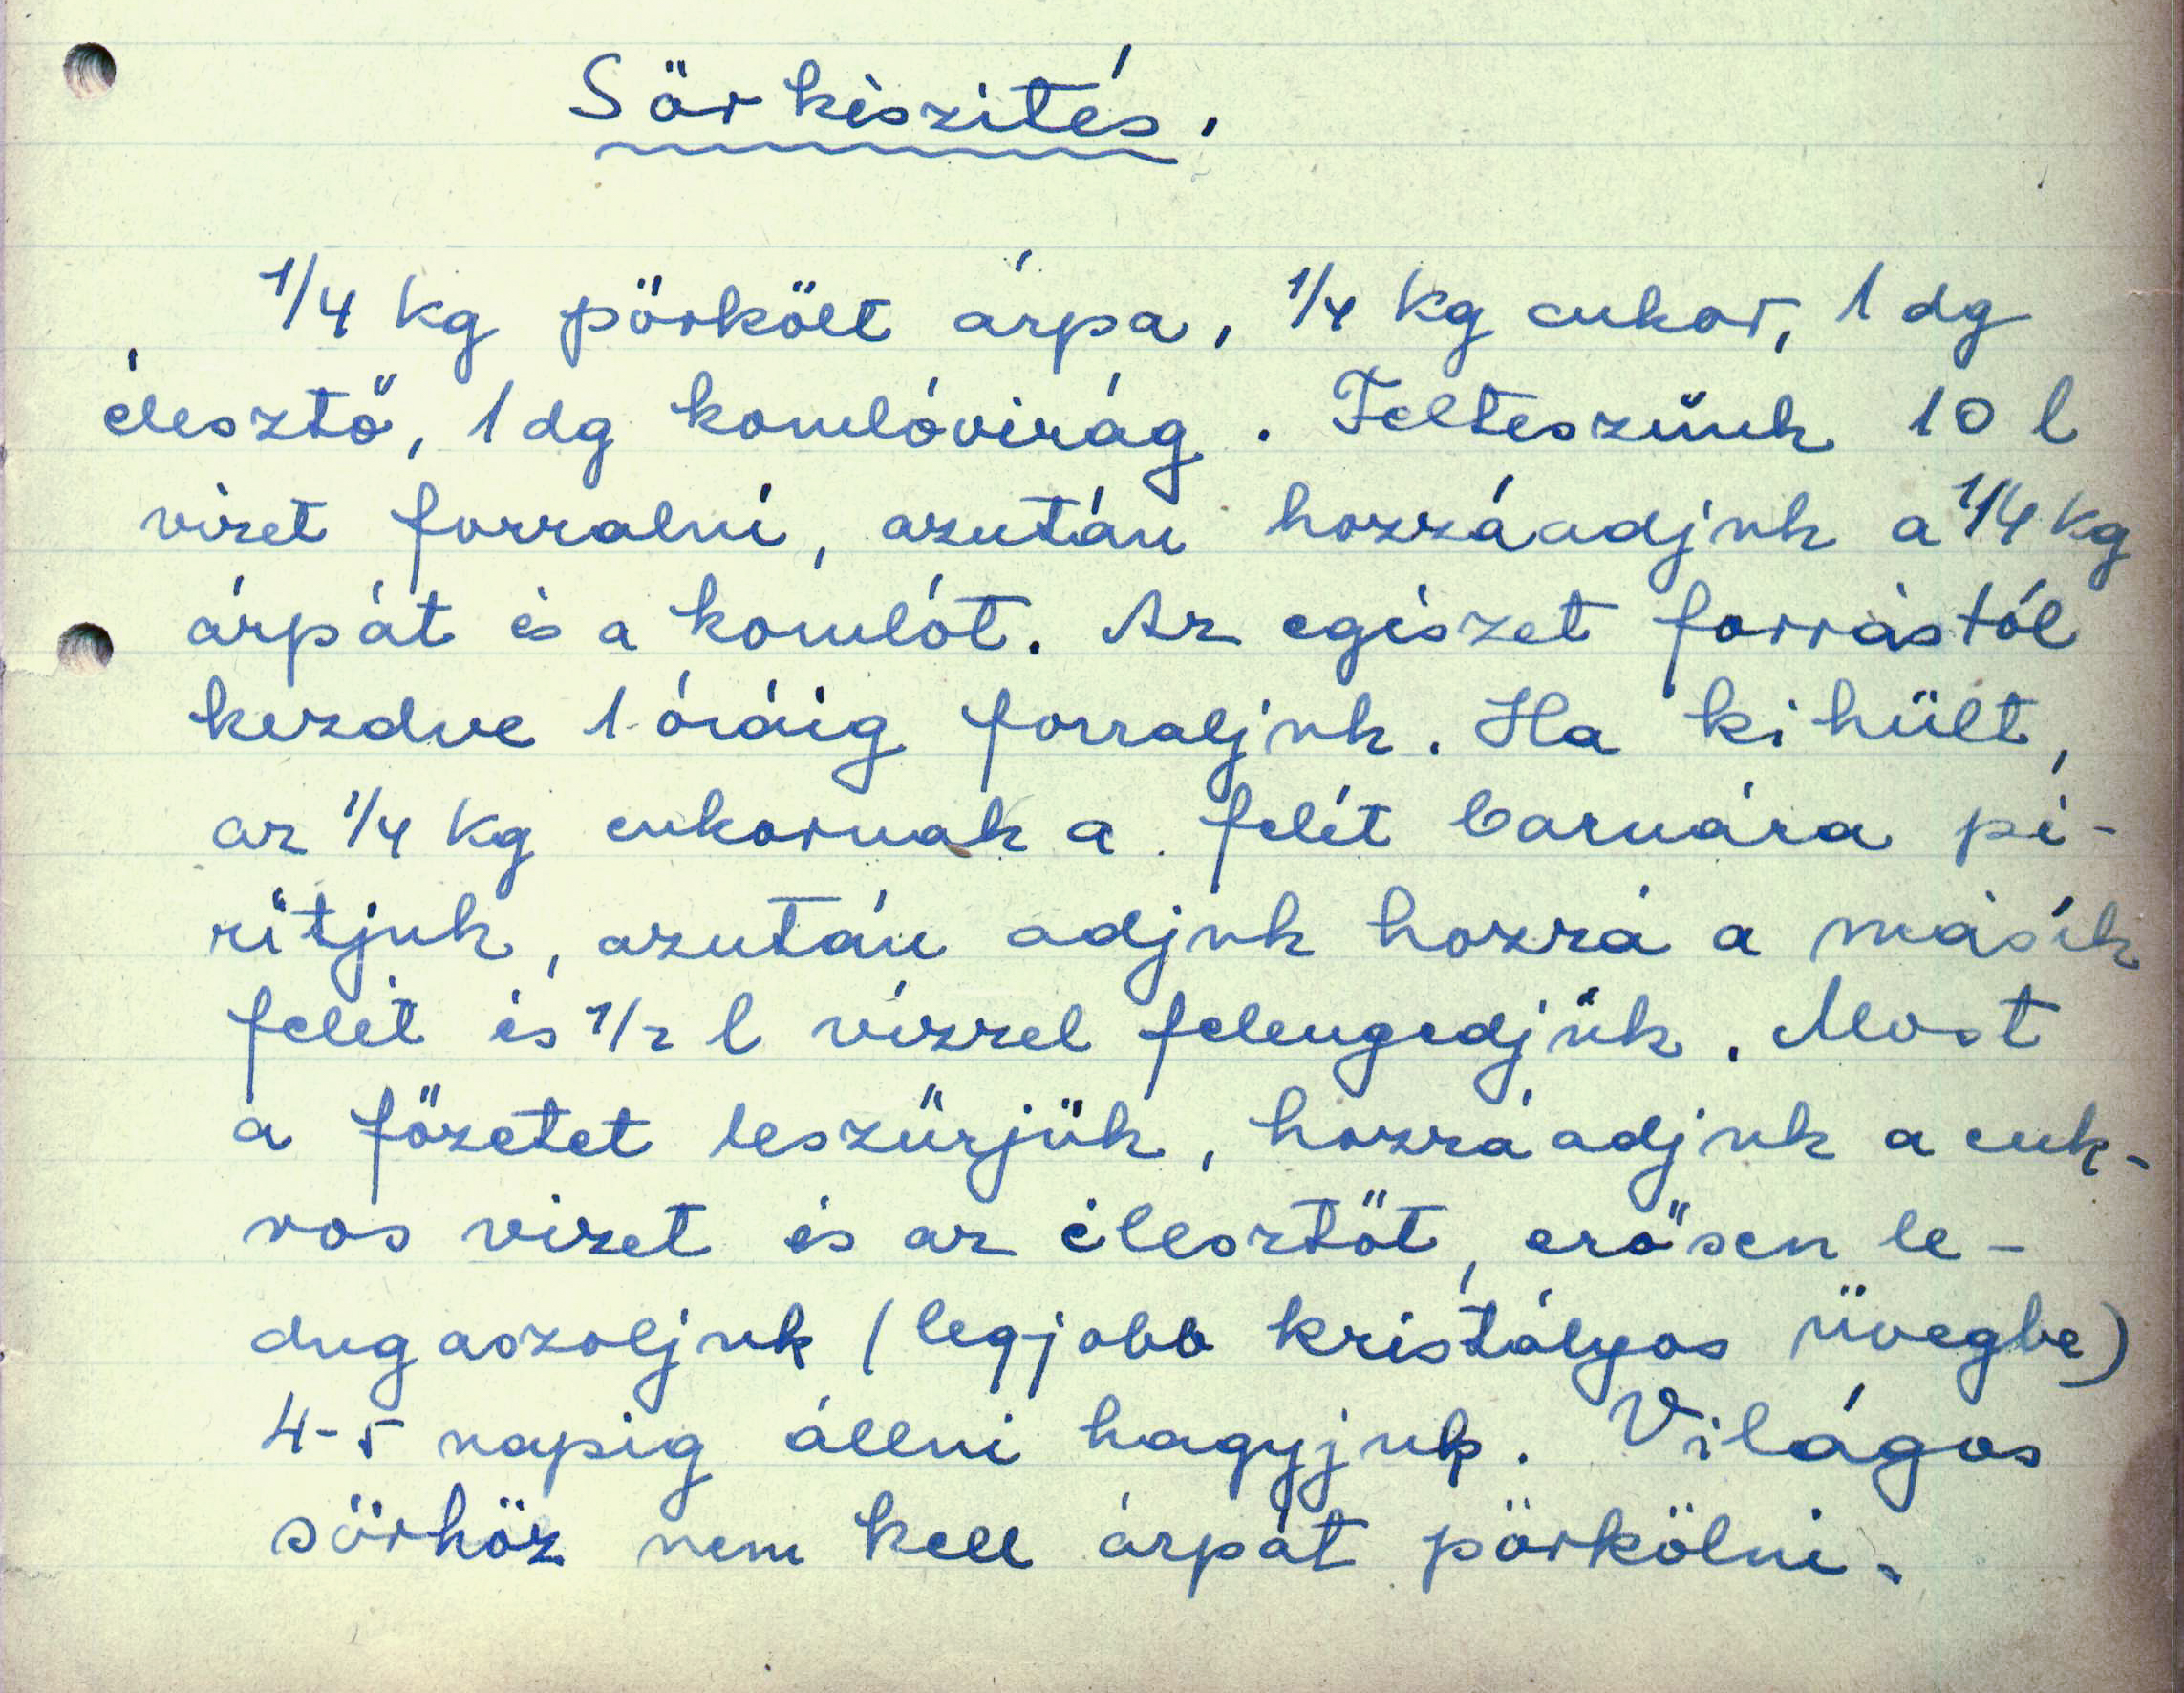 Sörkészítés.
1/4 kg pörkölt árpa, 1/4 kg cukor, 1 dg
élesztő, 1 dg komlóvirág. Felteszünk 10 l
vizet forralni, azután hozzáadjuk a 1/4 kg
árpát és a komlót. Az egészet forrástól
kezdve 1 óráig forraljuk. Ha kihült,
az 1/4 kg cukornak a felét barnára pi-
rítjuk, azután adjuk hozzá a másik
felét és 1/2 l vízzel felengedjük. Most
a főzetet leszűrjük, hozzáadjuk a cuk-
ros vizet és az élesztőt, erősen le-
dugaszoljuk (legjobb kristályos üvegbe)
4-5 napig állni hagyjuk. Világos
sörhöz nem kell árpát pörkölni.